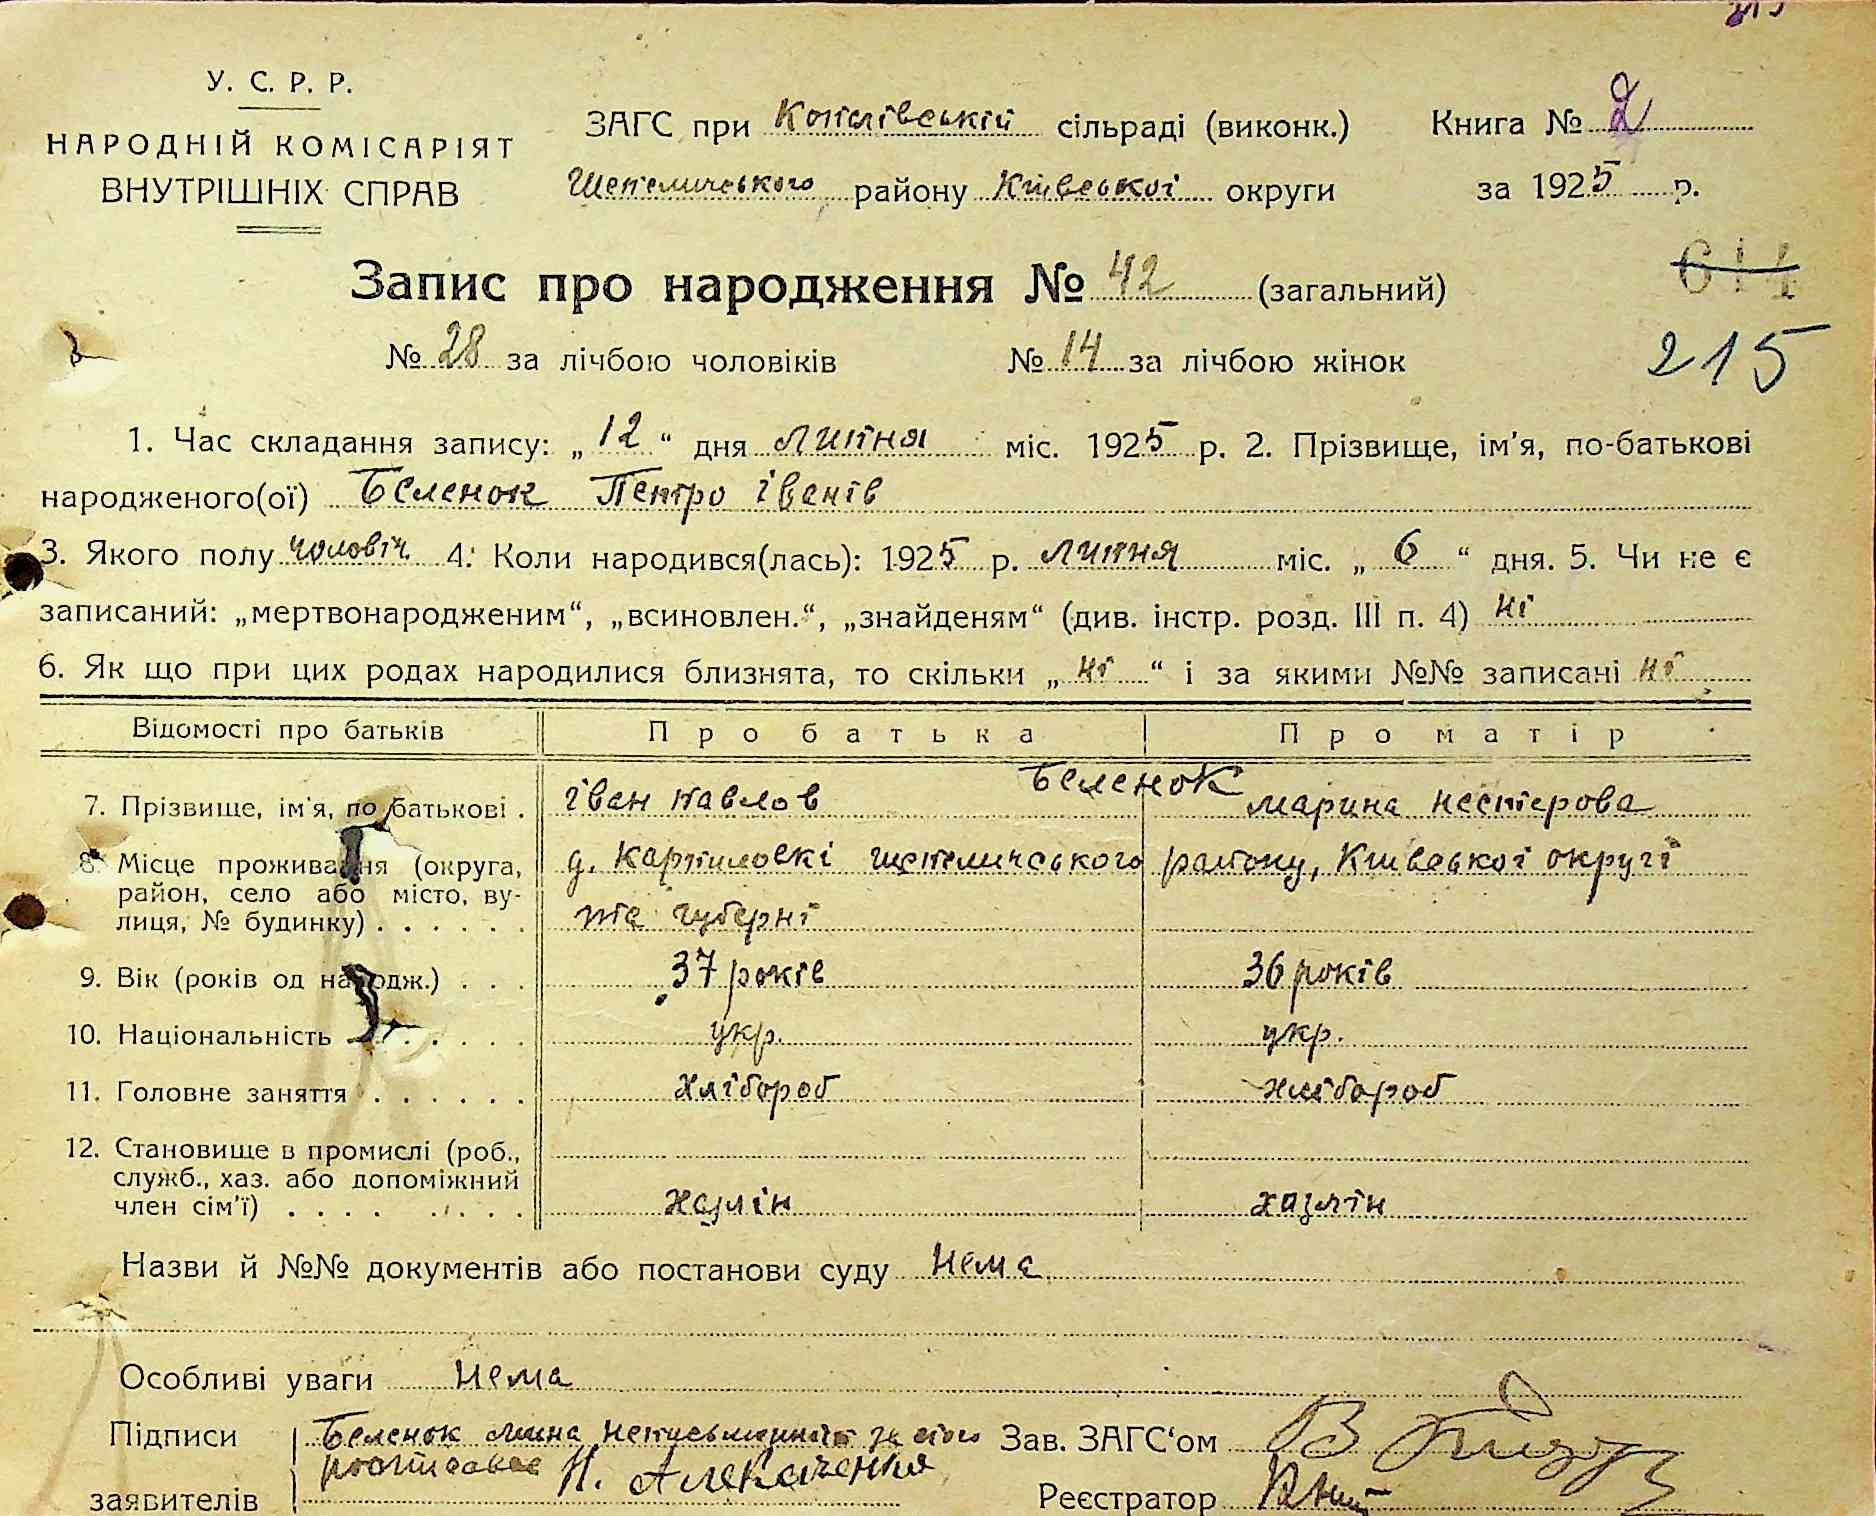 У. С. Р. Р.
НАРОДНІЙ КОМІСАРІЯТ
ВНУТРІШНІХ СПРАВ
ЗАГС при Копачівській сільраді (виконк.)
Шепелицького району Київської округи
Книга № 2
за 1925 р.
Запис про народження № 42 (загальний)
614
№ 28 за лічбою чоловіків № 14 за лічбою жінок
215
1. Час складання запису: „12“ дня липня міс. 1925 р. 2. Прізвище, ім'я, по-батькові
народженого(ої) Беленок Петро іванів
3. Якого полу чоловіч. 4. Коли народився(лась): 1925 р. липня міс. „6“ дня. 5. Чи не є
записаний: „мертвонародженим“, „всиновлен.“, „знайденям“ (див. інстр. розд. III п. 4) ні
6. Як що при цих родах народилися близнята, то скільки „ні“ і за якими №№ записані ні
Відомості про батьків Про батька Про матір
7. Прізвище, ім'я, по батькові . іван павлов Беленок марина нестерова
8. Місце проживання (округа, район, село або місто, вулиця, № будинку) . . . . . .
д. шепеличського району, Київської округі
та губерні
9. Вік (років од народж.) . . . 37 років 36 років
10. Національність . . . . . укр. укр.
11. Головне заняття . . . . . . хлібороб хлібороб
12. Становище в промислі (роб.,
служб., хаз. або допоміжний
член сім'ї) . . . . . . . . хазяін хазяін
Назви й №№ документів або постанови суду нема
Особливі уваги нема
Підписи
заявителів
Беленок за його
Н.
Зав. ЗАГС'ом В
Реєстратор